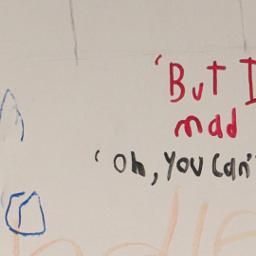 'But I
mad
'Oh, You Can'